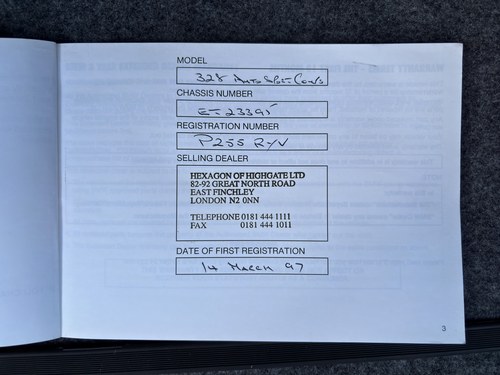 MODEL
328 Auto Sport. Conv
CHASSIS NUMBER
ET-23395
REGISTRATION NUMBER
P255 RYV
SELLING DEALER
HEXAGON OF HIGHGATE LTD
82-92 GREAT NORTH ROAD
EAST FINCHLEY
LONDON N2 0NN
TELEPHONE 0181 444 1111
FAX 0181 444 1011
DATE OF FIRST REGISTRATION
14 MARCH 97
3